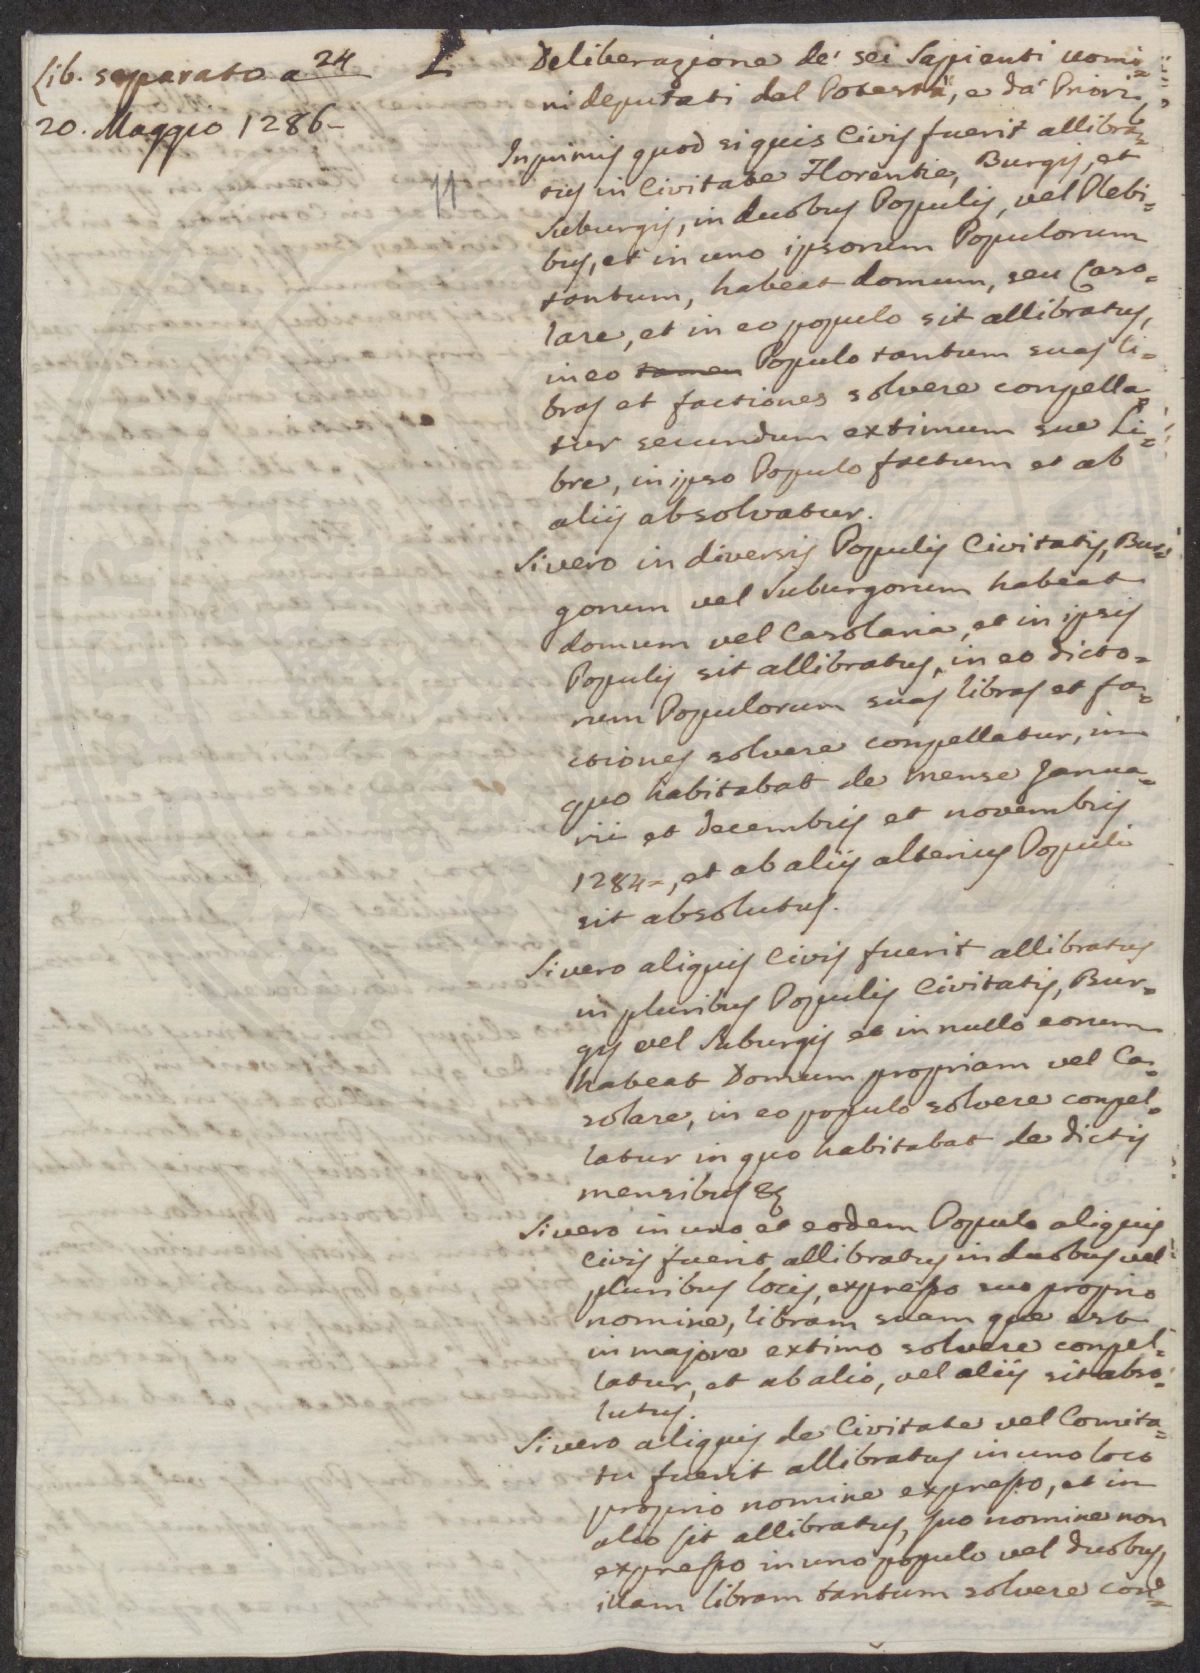 Lib. separato a 24
20. Maggio 1286-
Deliberazione de' sei Sapienti uomi=
ni deputati dal Potestà, e da' Priori
Inprimis quod si quis Civis fuerit allibra=
tus in Civitate Florentie, Burgis, et
Suburgis, in duobus Populis, vel Plebi=
bus, et in uno ipsorum Populorum
tantum, habeat domum, seu Caso=
lare, et in eo populo sit allibratus,
in eo tamen Populo tantum suas li=
bras et factiones solvere conpella=
tur secundum extimum sue Li=
bre, in ipso Populo factum et ab
aliis absolvatur.
Si vero in diversis Populis Civitatis, Bur=
gorum vel Suburgorum habeat
domum vel Casolaria, et in ipsis
Populis sit allibratus, in eo dicto=
rum Populorum suas libras et fa=
ctiones solvere conpellatur, in
quo habitabat de mense Janua=
rii et Decembris et novembris
1284=, et ab aliis alterius Populi
sit absolutus.
Si vero aliquis Civis fuerit allibratus
in pluribus Populis Civitatis, Bur=
gis vel Suburgis et in nullo eorum
habeat Domum propriam vel Ca=
solare, in eo populo solvere conpel=
latur in quo habitabat de dictis
mensibus &c
Si vero in uno et eodem Populo aliquis
Civis fuerit allibratus in duobus vel
pluribus locis, expresso suo proprio
nomine, libram suam que est
in majore extimo solvere conpel=
latur, et ab alio, vel aliis sit abso=
lutus.
Si vero aliquis de Civitate vel Comita=
tu fuerit allibratus in uno loco
proprio nomine expresso, et in
alio sit allibratus, suo nomine non
expresso in uno populo vel duobus,
illam libram tantum solvere con=